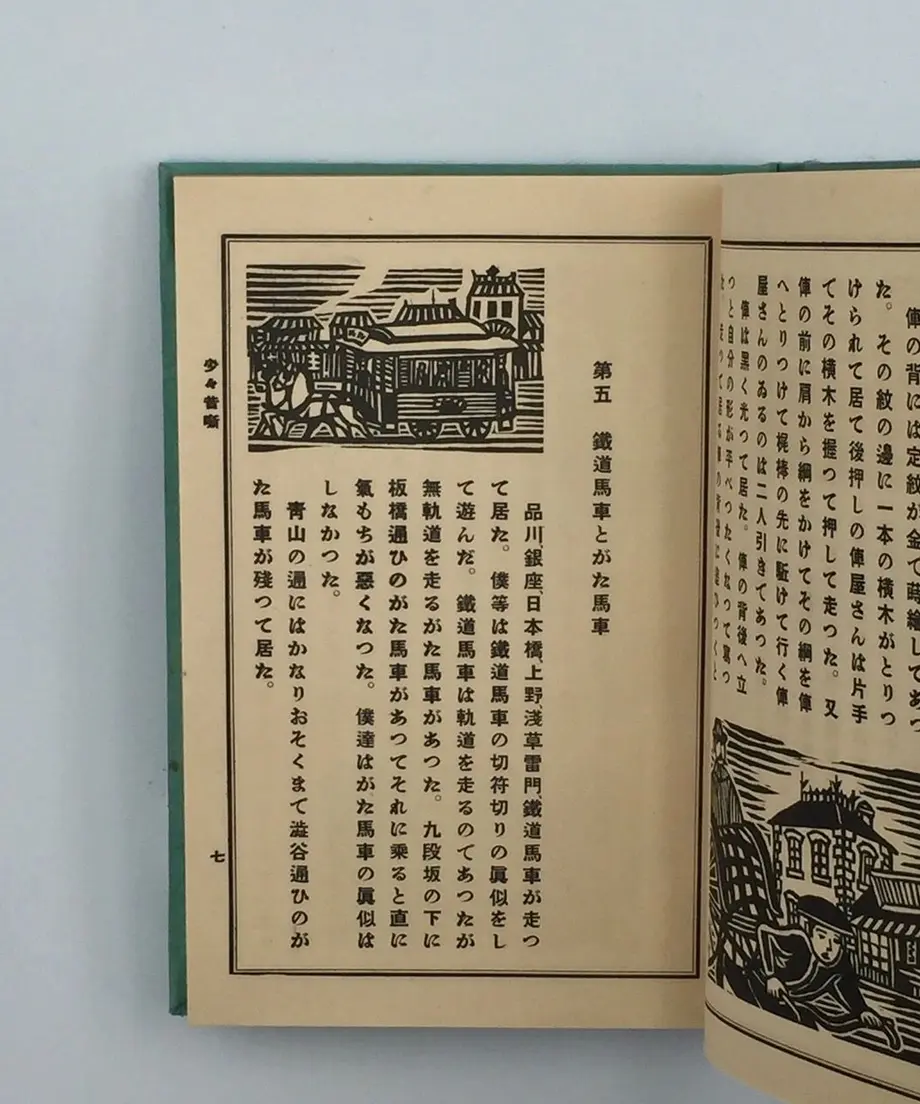 俥の背には定紋が金で蒔繪してあつ
た。その紋の邊に一本の横木がとりつ
けられて居て後押しの俥屋さんは片手
でその横木を握つて押して走つた。又
俥の前に肩から綱をかけてその綱を俥
へとりつけて梶棒の先に駈けて行く俥
屋さんのゐるのは二人引きであつた。
俥は黒く光つて居た。俥の背後へ立
つと自分の形が平べつたくなつて寫つ
第五 鐵道馬車とがた馬車
品川、銀座、日本橋、上野、淺草雷門、鐵道馬車が走つ
て居た。僕等は鐵道馬車の切符切りの眞似をし
て遊んだ。鐵道馬車は軌道を走るのであつたが
無軌道を走るがた馬車があつた。九段坂の下に
板橋通ひのがた馬車があつてそれに乘ると直に
氣もちが惡くなつた。僕達はがた馬車の眞似は
しなかつた。
靑山の通にはかなりおそくまで澁谷通ひのが
た馬車が殘つて居た。
少々昔噺
七